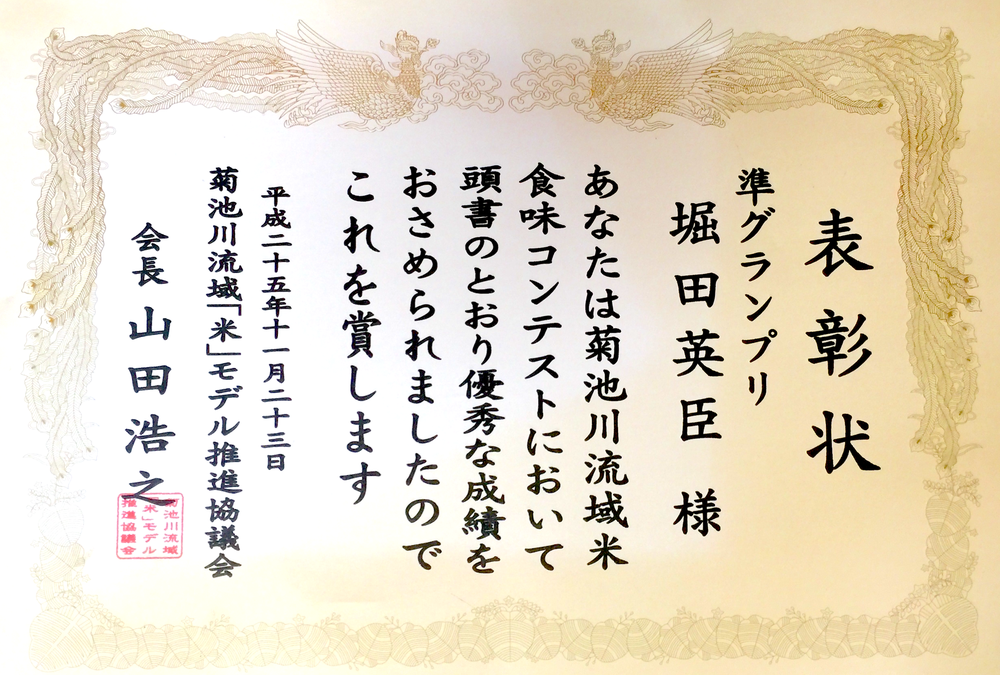 表彰状
準グランプリ
堀田英臣 様
あなたは菊池川流域米
食味コンテストにおいて
頭書のとおり優秀な成績を
おさめられましたので
これを賞します
平成二十五年十一月二十三日
菊池川流域「米」モデル推進協議会
会長 山田浩之
菊池川流域
「米」モデル
推進協議会